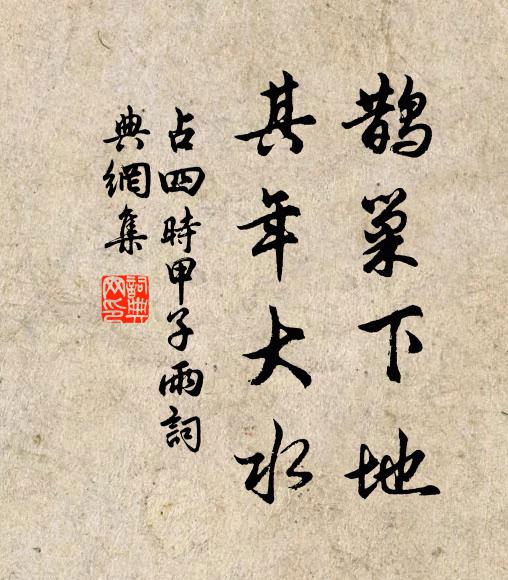 鵲巢下地
其年大水
占四時甲子雨詞
典網集
詞典
网印